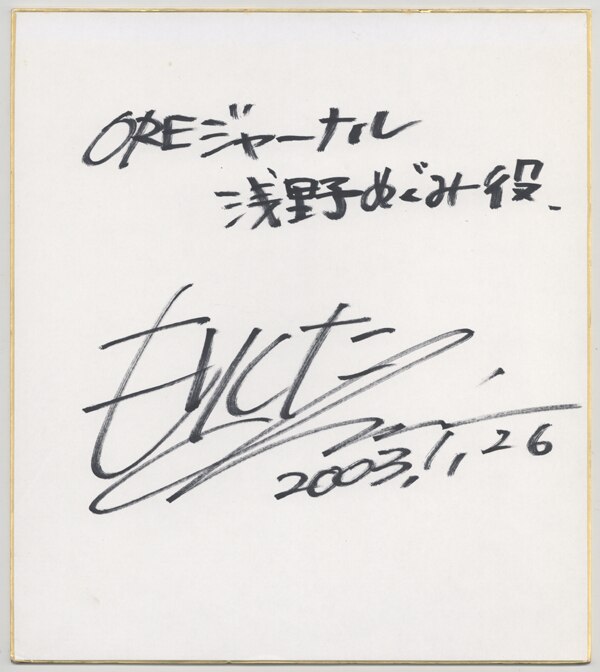 OREジャーナル
浅野めぐみ役.
2003.1.26